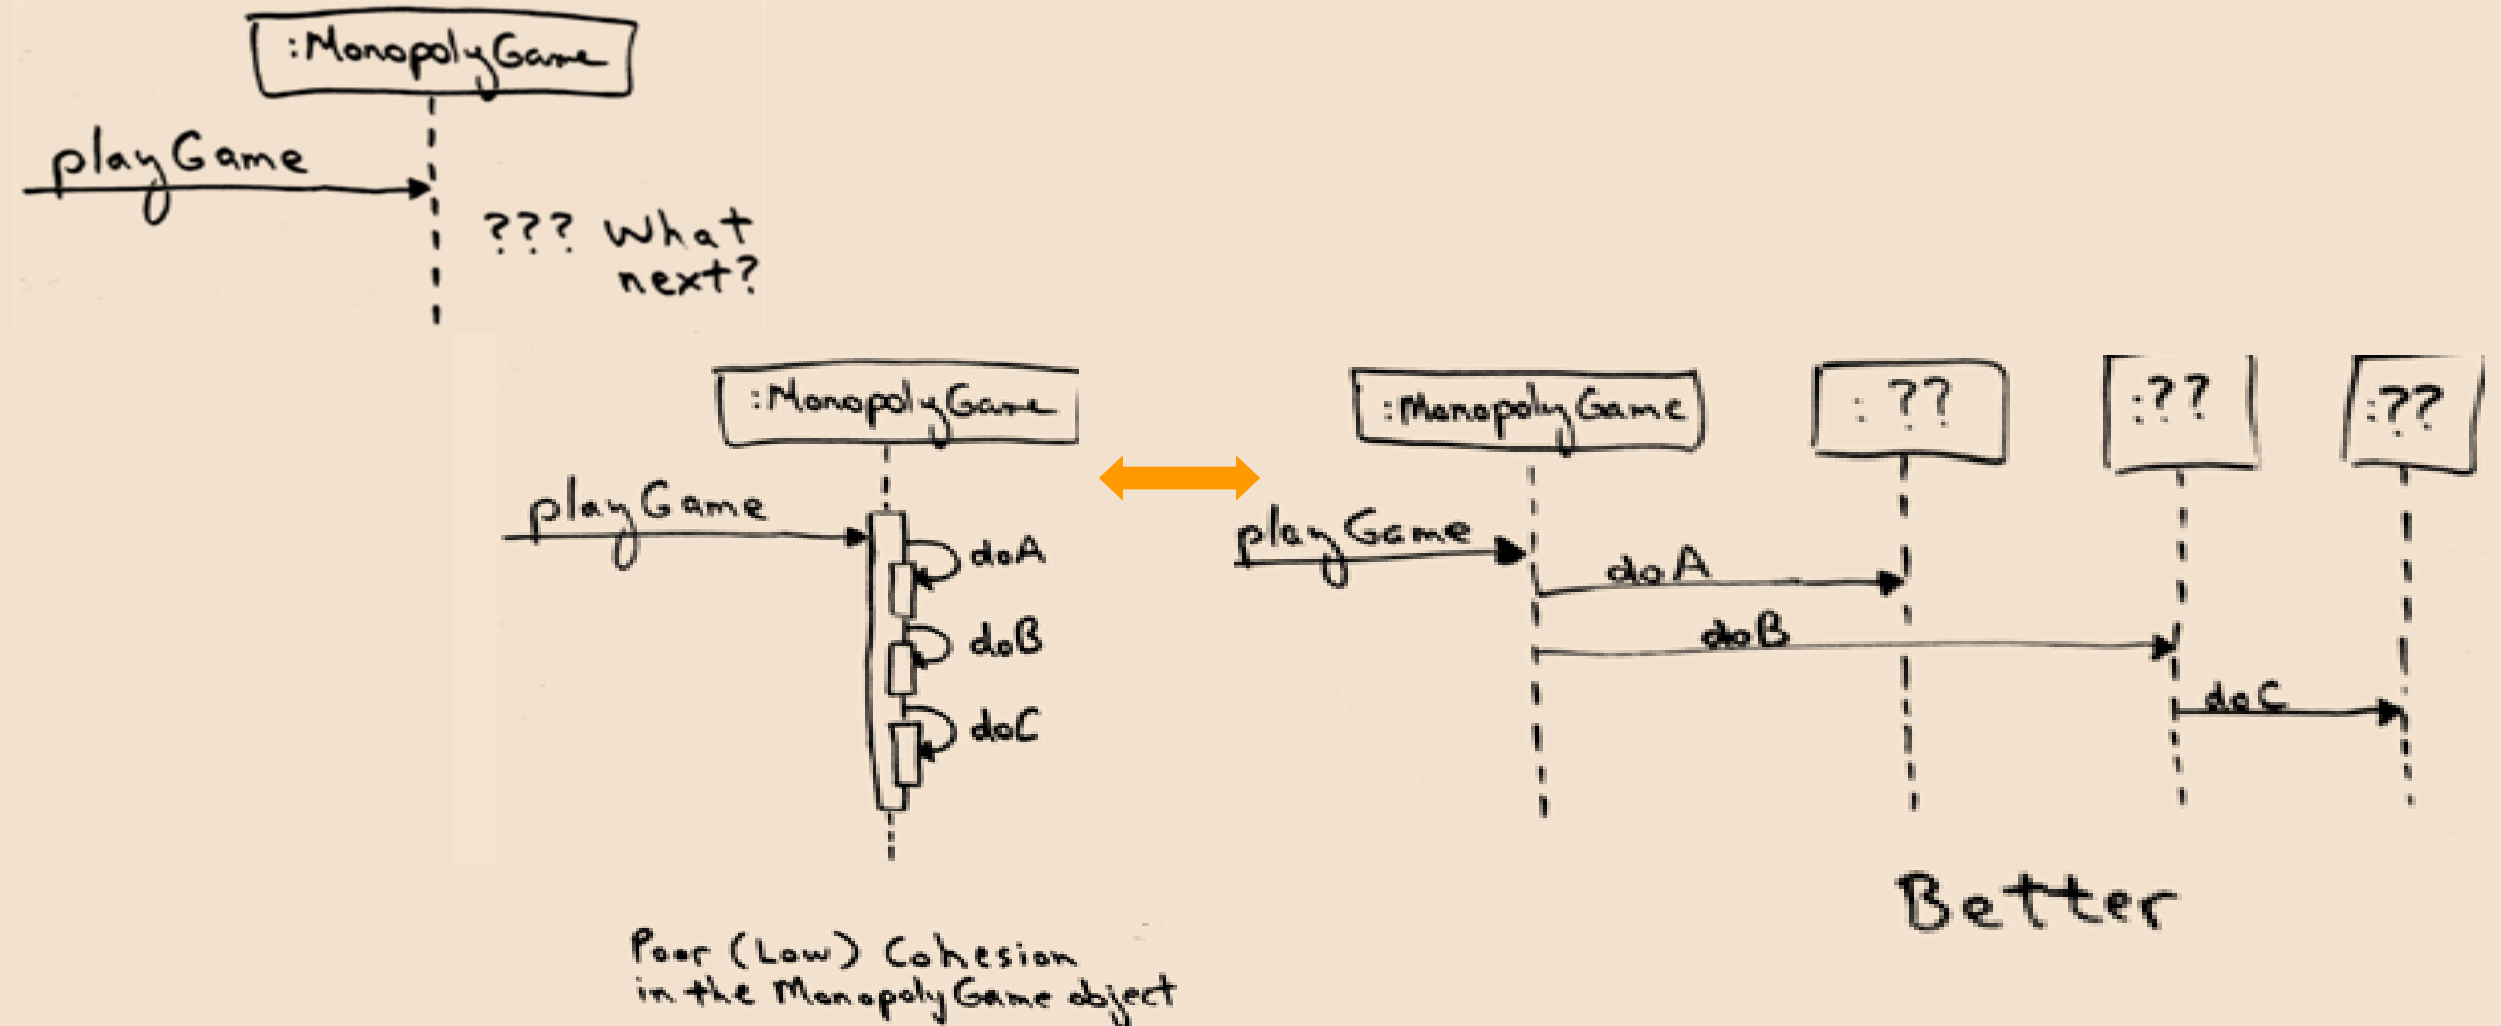 :MonopolyGame
playGame
??? What
next?
:MonopolyGame
playGame
doA
doB
doC
Poor (Low) Cohesion
in the MonopolyGame object
:MonopolyGame
: ??
:??
:??
playGame
doA
doB
doC
Better